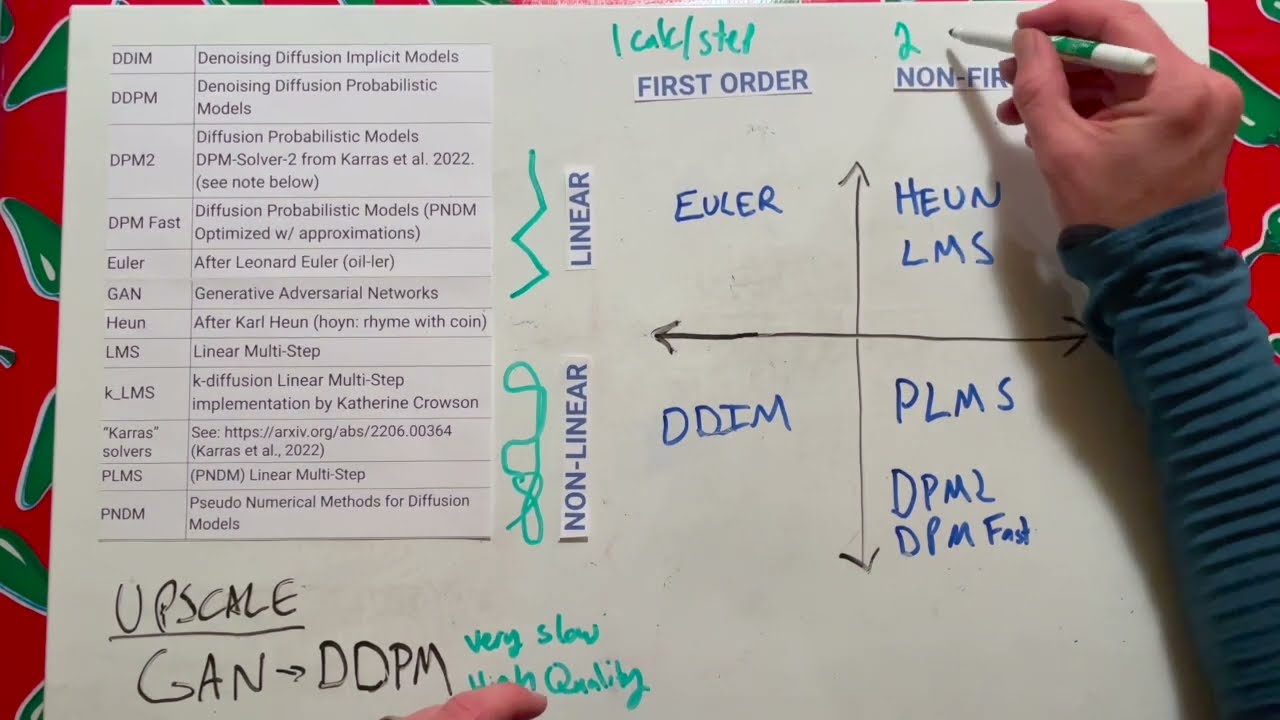 DDIM Denoising Diffusion Implicit Models
DDPM Denoising Diffusion Probabilistic
Models
DPM2 Diffusion Probabilistic Models
DPM-Solver-2 from Karras et al. 2022.
(see note below)
DPM Fast Diffusion Probabilistic Models (PNDM
Optimized w/ approximations)
Euler After Leonard Euler (oil-ler)
GAN Generative Adversarial Networks
Heun After Karl Heun (hoyn: rhyme with coin)
LMS Linear Multi-Step
k_LMS k-diffusion Linear Multi-Step
implementation by Katherine Crowson
"Karras" See: https://arxiv.org/abs/2206.00364
solvers (Karras et al., 2022)
PLMS (PNDM) Linear Multi-Step
PNDM Pseudo Numerical Methods for Diffusion
Models
UPSCALE
GAN → DDPM
very slow
High Quality
LINEAR
NON-LINEAR
1 calc/step
FIRST ORDER
2
NON-FIR
EULER
HEUN
LMS
DDIM
PLMS
DPM2
DPM Fast